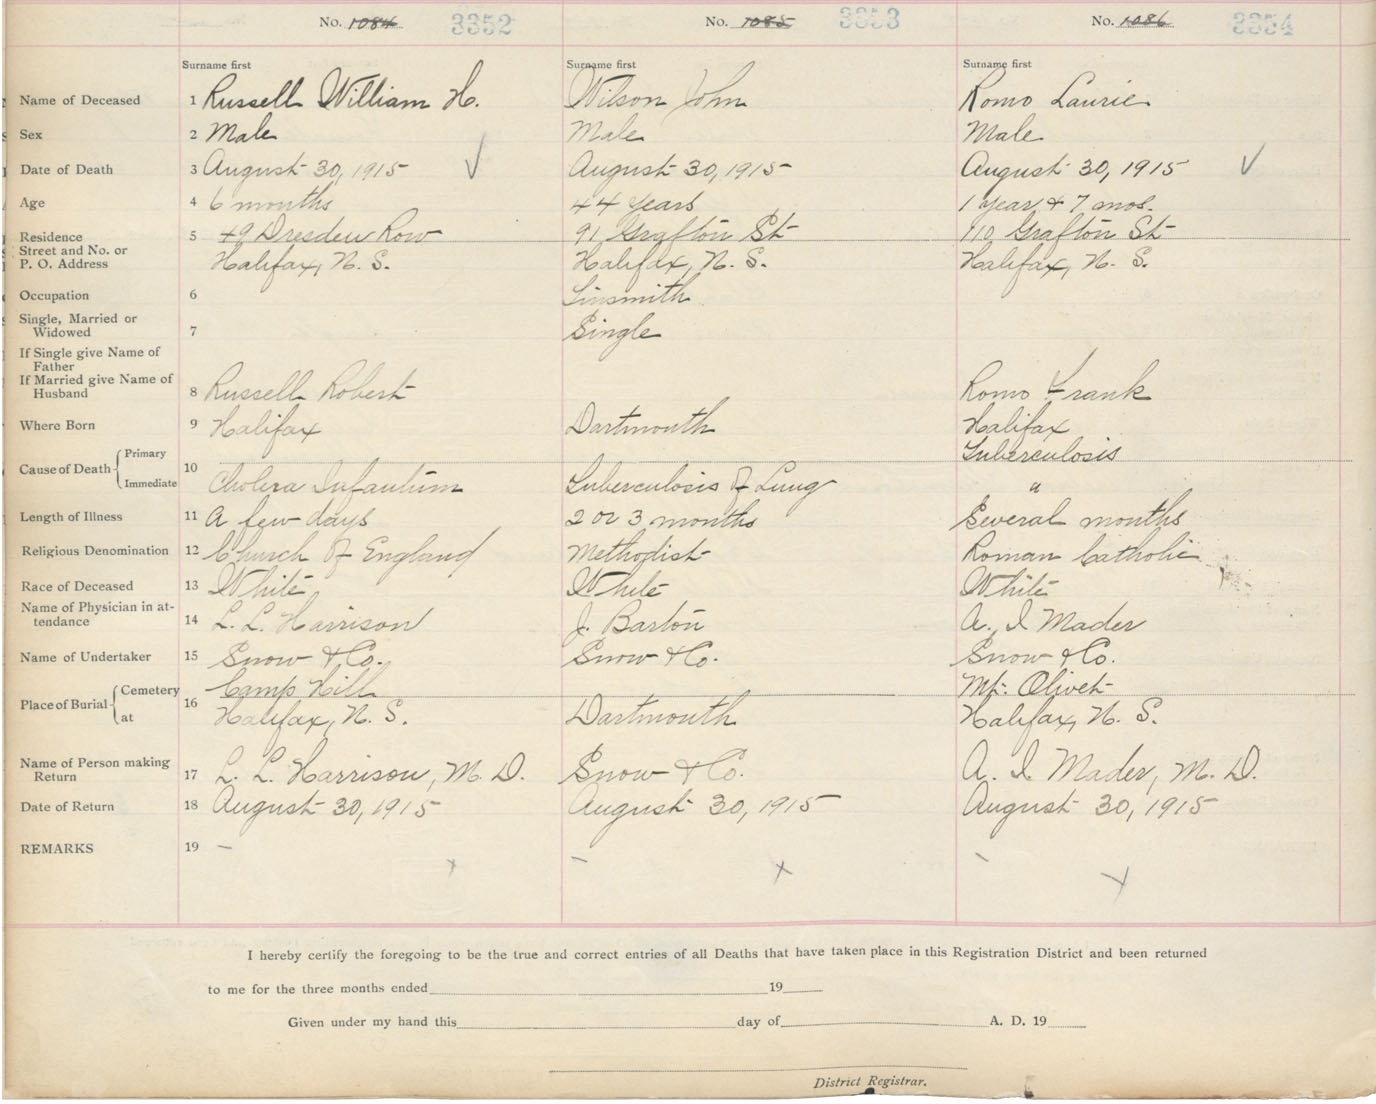 No. 1084 3352 No. 1085 3353 No. 1086 3354
Surname first Surname first Surname first
Name of Deceased 1 Russell William H. Wilson John Romo Laurie
Sex 2 Male Male Male
Date of Death 3 August 30, 1915 August 30, 1915 August 30, 1915
Age 4 6 months 44 years 1 year & 7 mos.
Residence 5 49 Dresden Row 91 Grafton St 110 Grafton St
Street and No. or
P. O. Address Halifax, N. S. Halifax, N. S. Halifax, N. S.
Occupation 6 Tinsmith
Single, Married or
Widowed 7 Single
If Single give Name of
Father
If Married give Name of
Husband 8 Russell Robert Romo Frank
Where Born 9 Halifax Dartmouth Halifax
Cause of Death Primary 10 Tuberculosis
Immediate Cholera Infantum Tuberculosis of Lung "
Length of Illness 11 A few days 2 or 3 months Several months
Religious Denomination 12 Church of England Methodist Roman Catholic
Race of Deceased 13 White White White
Name of Physician in at-
tendance 14 L. L. Harrison J. Barton A. I Mader
Name of Undertaker 15 Snow & Co. Snow & Co. Snow & Co.
Place of Burial Cemetery 16 Camp Hill Mt. Olivet
at Halifax, N. S. Dartmouth Halifax, N. S.
Name of Person making
Return 17 L. L. Harrison, M. D. Snow & Co. A. I. Mader, M. D.
Date of Return 18 August 30, 1915 August 30, 1915 August 30, 1915
REMARKS 19 – – –
I hereby certify the foregoing to be the true and correct entries of all Deaths that have taken place in this Registration District and been returned
to me for the three months ended 19
Given under my hand this day of A. D. 19
District Registrar.